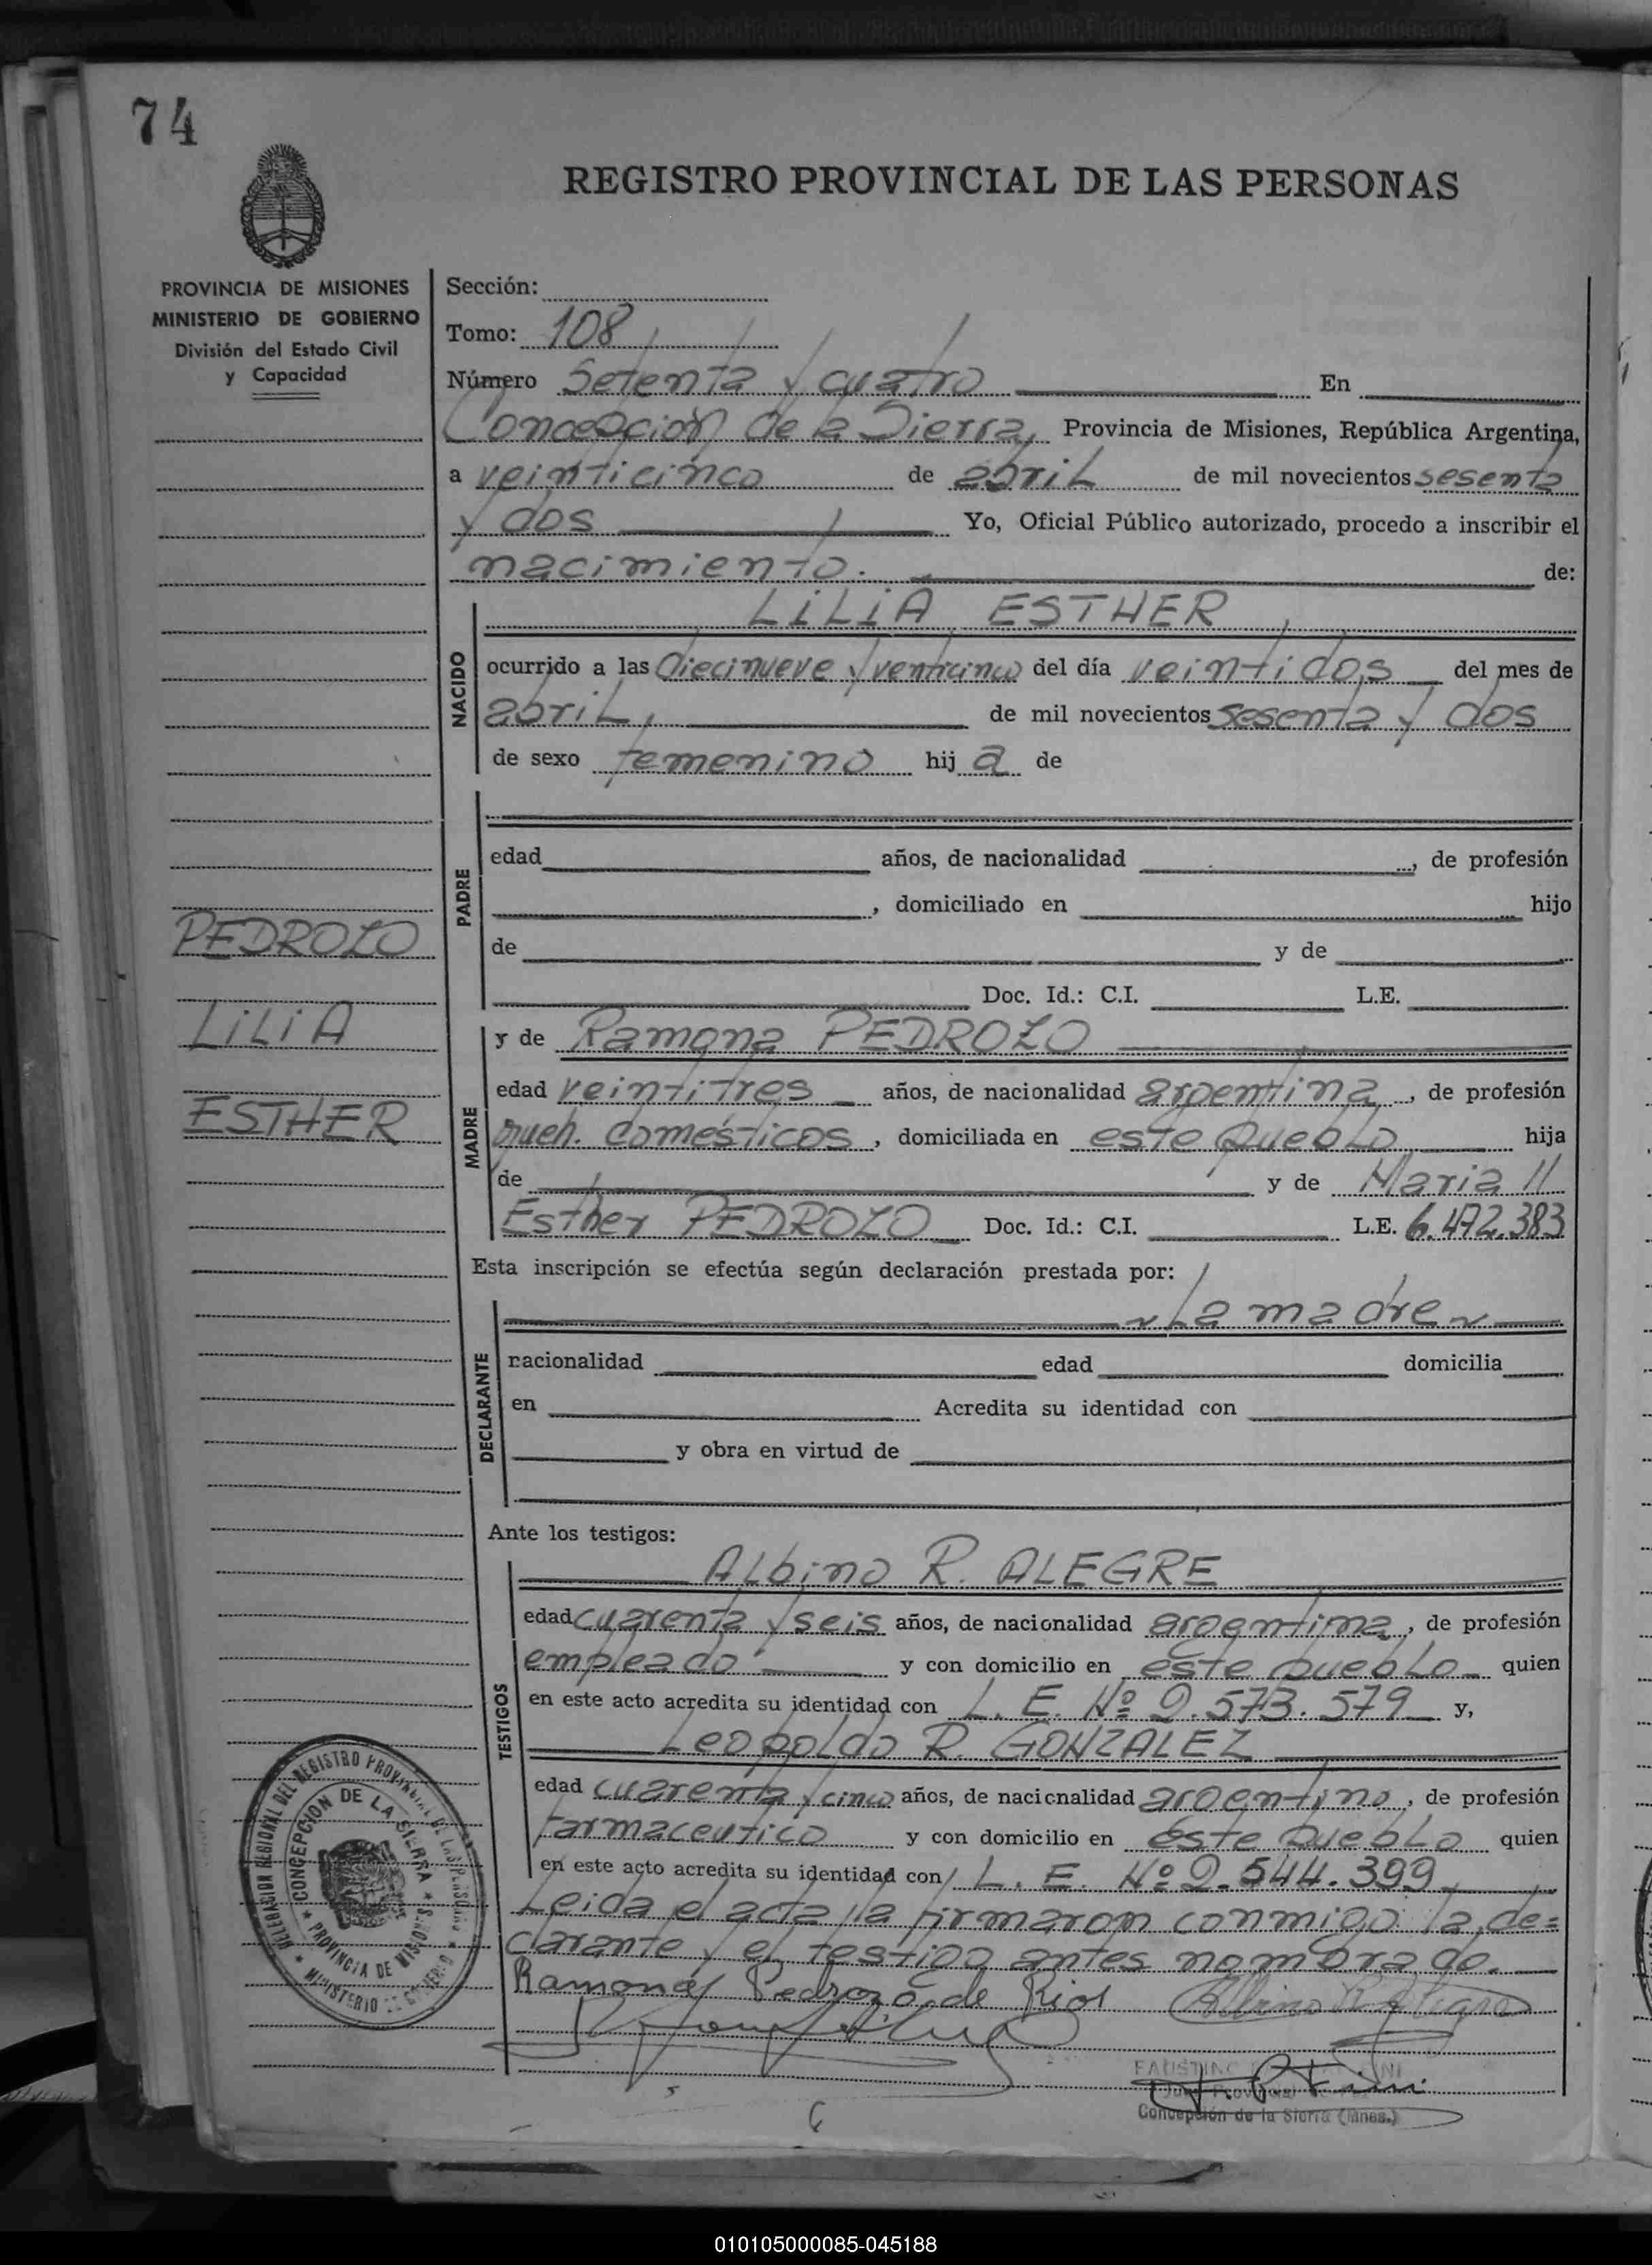 74
REGISTRO PROVINCIAL DE LAS PERSONAS
PROVINCIA DE MISIONES
MINISTERIO DE GOBIERNO
División del Estado Civil
y Capacidad
Sección:
Tomo: 108
Número Setenta y cuatro En
Concepción de la Sierra, Provincia de Misiones, República Argentina,
a veinticinco de abril de mil novecientos sesenta
y dos Yo, Oficial Público autorizado, procedo a inscribir el
nacimiento. de:
NACIDO
LILIA ESTHER
ocurrido a las diecinueve y venticinco del día veintidos del mes de
abril, de mil novecientos sesenta y dos
de sexo femenino hij a de
PADRE
edad años, de nacionalidad , de profesión
, domiciliado en hijo
de y de
Doc. Id.: C.I. L.E.
PEDROZO
LILIA
ESTHER
MADRE
y de Ramona PEDROZO
edad veintitres años, de nacionalidad argentina, de profesión
queh. domésticos, domiciliada en este pueblo hija
de y de Maria //
Esther PEDROZO Doc. Id.: C.I. L.E. 6.472.383
Esta inscripción se efectúa según declaración prestada por:
DECLARANTE
La madre
nacionalidad edad domicilia
en Acredita su identidad con
y obra en virtud de
Ante los testigos:
TESTIGOS
Albino R. ALEGRE
edad cuarenta y seis años, de nacionalidad argentina, de profesión
empleado y con domicilio en este pueblo quien
en este acto acredita su identidad con L. E. Nº 2.573.579 y,
Leopoldo R. GONZALEZ
edad cuarenta y cinco años, de nacionalidad argentino, de profesión
farmaceutico y con domicilio en este pueblo quien
en este acto acredita su identidad con L. E. Nº 2.544.399
Leida el acta, la firmaron conmigo la de=
clarante y el testigo antes nombrado.
Ramona Pedrozo de Rios Albino R. Alegre
DELEGACION REGIONAL DEL REGISTRO PROVINCIAL DE LAS PERSONAS
MINISTERIO DE GOBIERNO
CONCEPCION DE LA SIERRA
PROVINCIA DE MISIONES
Concepción de la Sierra (Mnes.)
010105000085-045188